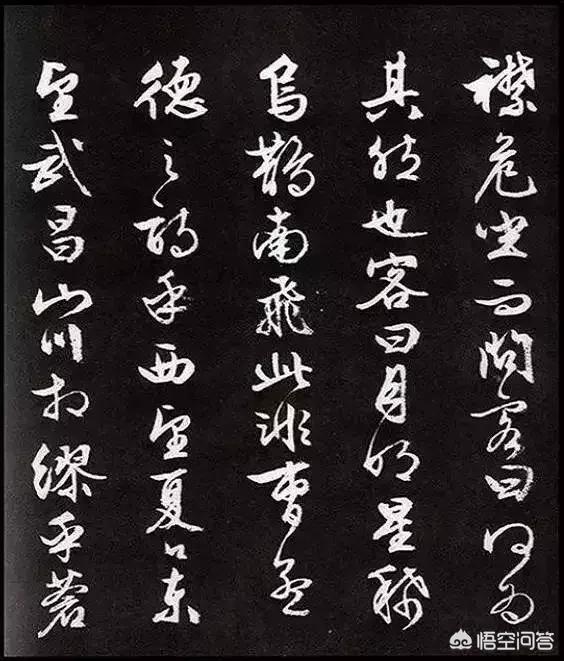 襟危坐而問客曰何為
其然也客曰月明星稀
烏鵲南飛此非曹孟
德之詩乎西望夏口東
望武昌山川相繆乎蒼
悟空问答